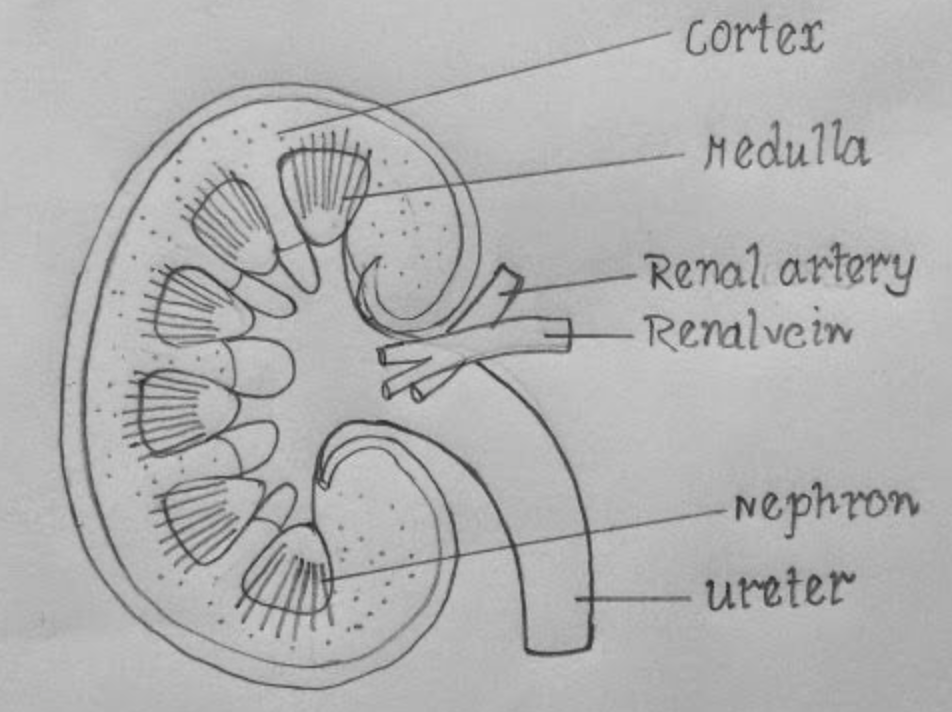 Cortex
Medulla
Renal artery
Renalvein
Nephron
Ureter